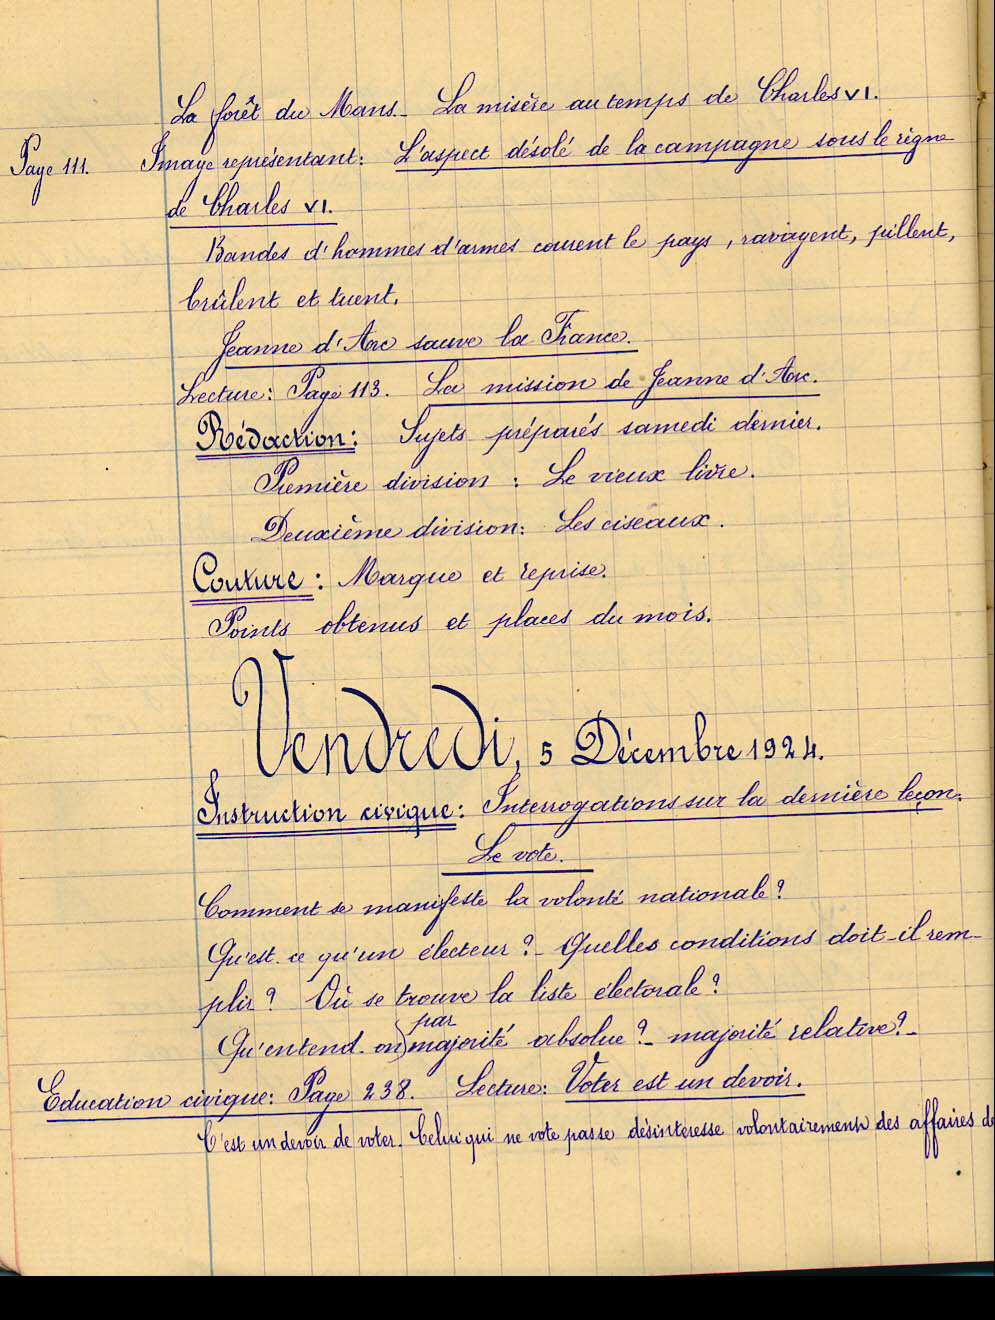 La forêt du Mans._ La misère au temps de Charles VI.
Page 111. Image représentant: L'aspect désolé de la campagne sous le règne
de Charles VI.
Bandes d'hommes d'armes courent le pays, ravagent, pillent,
brûlent et tuent.
Jeanne d'Arc sauve la France.
Lecture: Page 113. La mission de Jeanne d'Arc.
Rédaction: Sujets préparés samedi dernier.
Première division : Le vieux livre.
Deuxième division: Les ciseaux.
Couture: Marque et reprise.
Points obtenus et places du mois.
Vendredi, 5 Décembre 1924.
Instruction civique: Interrogations sur la dernière leçon.
Le vote.
Comment se manifeste la volonté nationale?
Qu'est-ce qu'un électeur?_ Quelles conditions doit-il rem-
plir? Où se trouve la liste électorale?
par
Qu'entend-on majorité absolue?_ majorité relative?_
Education civique: Page 238. Lecture: Voter est un devoir.
C'est un devoir de voter. Celui qui ne vote pas se désintéresse volontairement des affaires de